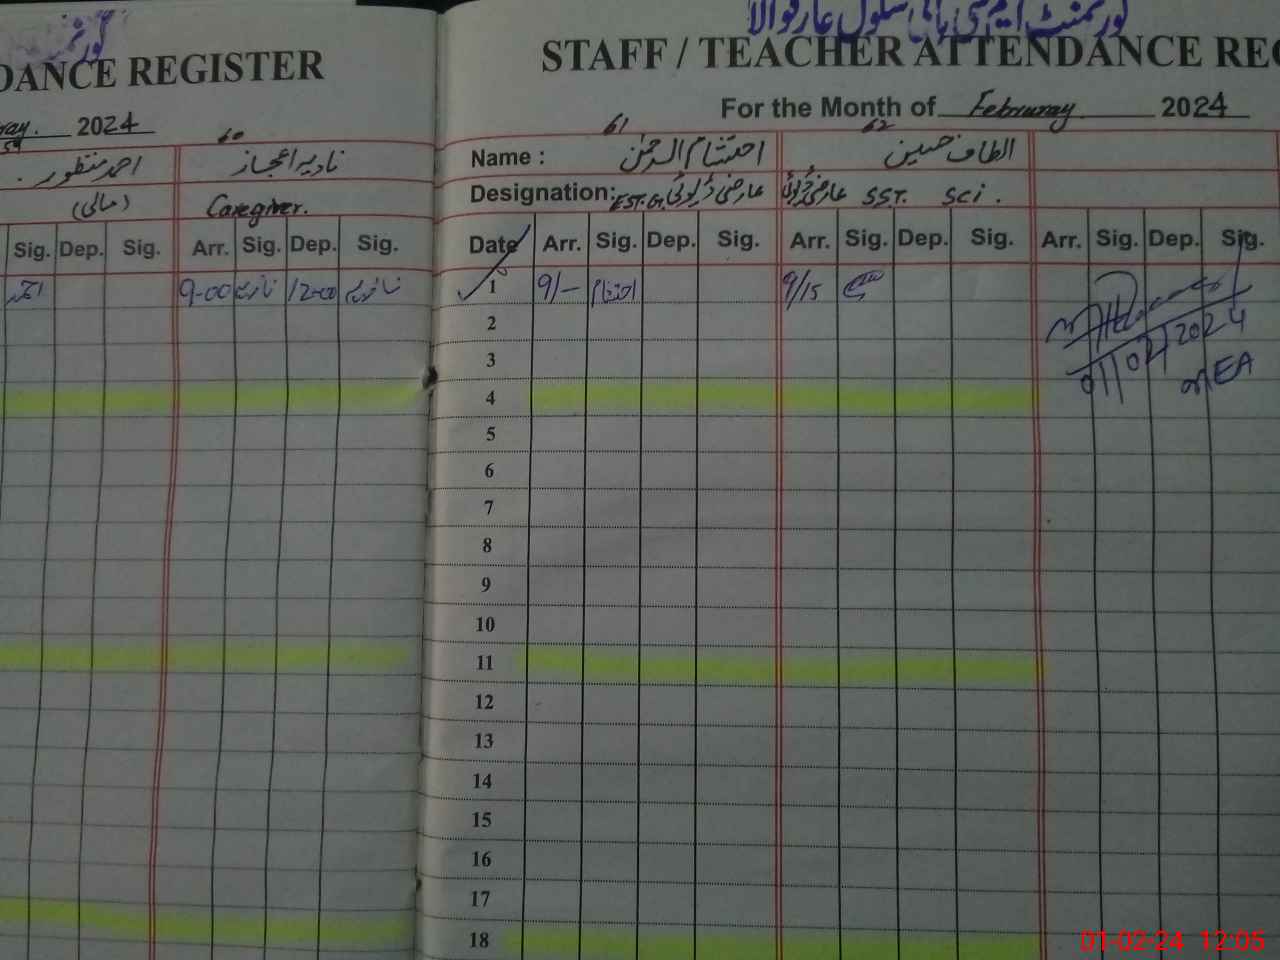 گورنمنٹ ایم سی ہائی سکول عارفوالا
DANCE REGISTER
STAFF / TEACHER ATTENDANCE REG
For the Month of Februray 2024
ray. 2024
59 60
احمد منظور . نادیہ اعجاز
(مالی) Caregiver.
Sig. Dep. Sig. Arr. Sig. Dep. Sig.
9-00 نادیہ 12-00 نادیہ
61 62
Name : احتشام الرحمن الطاف حسین
Designation: EST.G. عارضی ڈیوٹی عارضی ڈیوٹی SST. Sci .
Date Arr. Sig. Dep. Sig. Arr. Sig. Dep. Sig. Arr. Sig. Dep. Sig.
1 9/- احتشام 9/15
2
3
4
5
6
7
8
9
10
11
12
13
14
15
16
17
18
01/02/2024
MEA
01-02-24 12:05